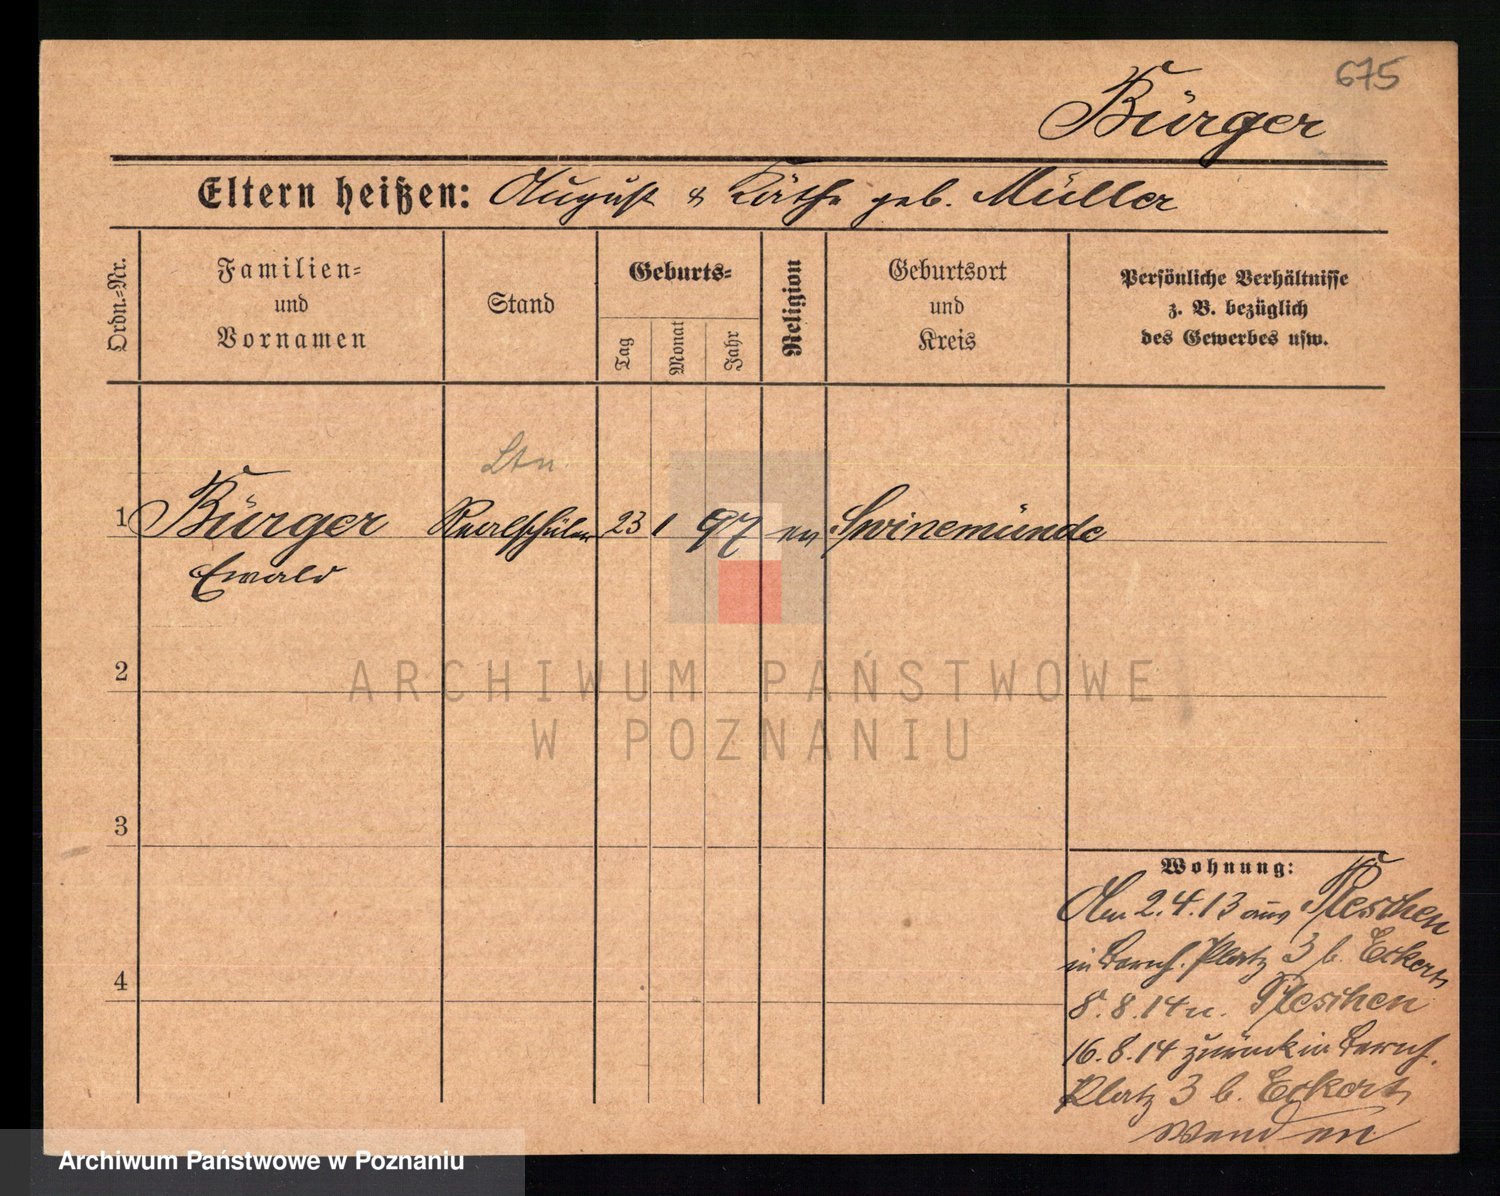 675
Bürger
Eltern heißen: August & Käthe geb. Müller
Ordn.=Nr.
Familien=
und
Vornamen
Stand
Geburts=
Tag
Monat
Jahr
Religion
Geburtsort
und
Kreis
Persönliche Verhältnisse
z. B. bezüglich
des Gewerbes usw.
Ltn.
1 Bürger Realschüler 23 1 97 ev Swinemünde
Ewald
2
ARCHIWUM PAŃSTWOWE
W POZNANIU
3
4
Wohnung:
Am 2.4.13 aus Pleschen
in Bernh. Platz 3 b. Eckert
8.8.14 n. Pleschen
16.8.14 zurück in Bernh.
Platz 3 b. Eckert
wenden
Archiwum Państwowe w Poznaniu